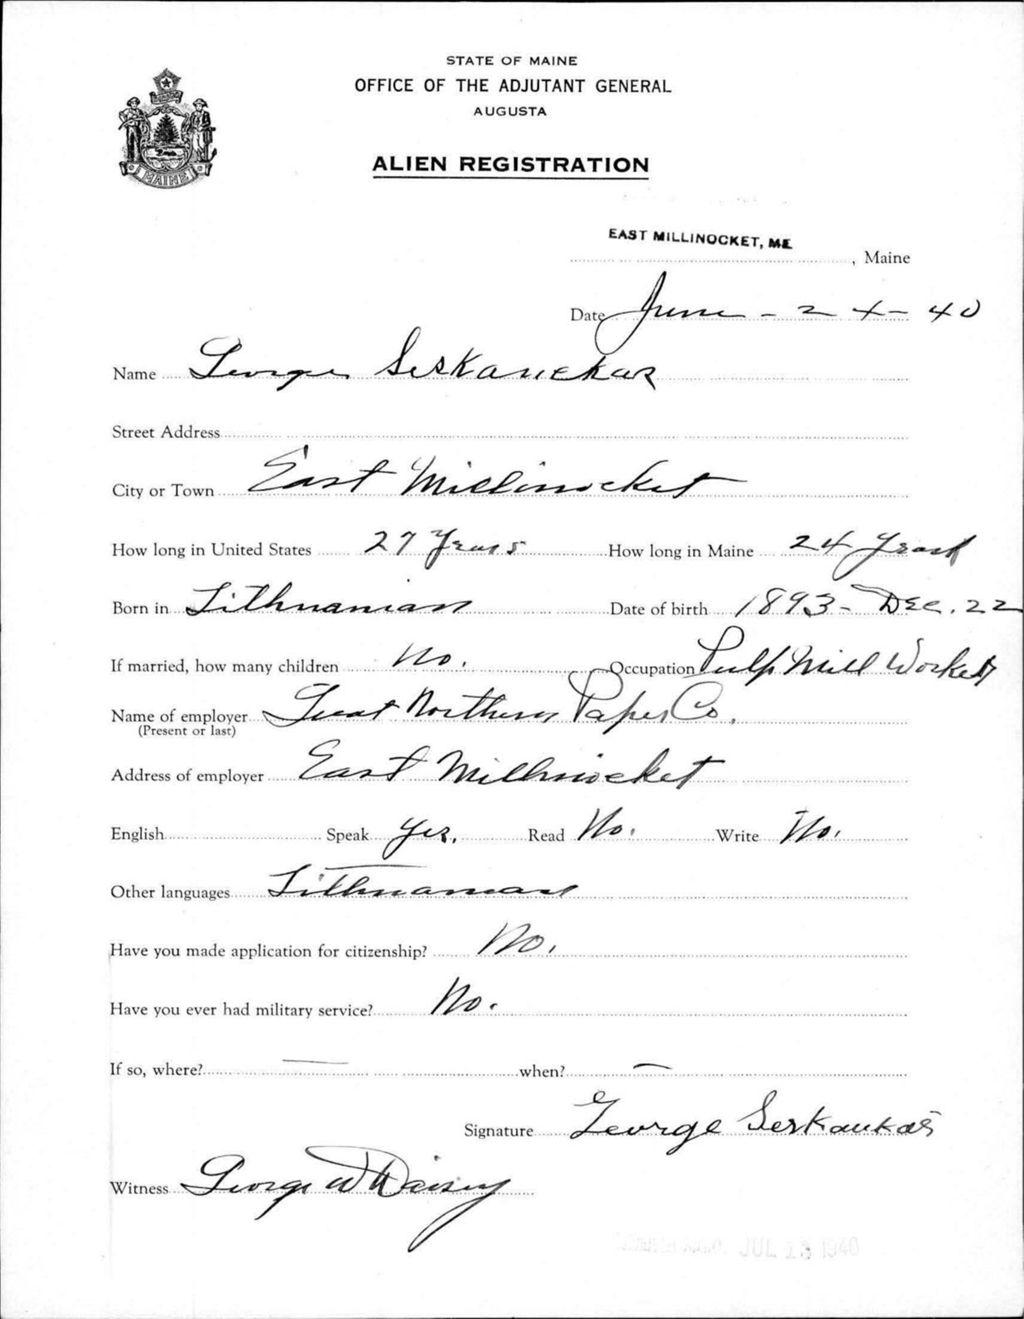 STATE OF MAINE
OFFICE OF THE ADJUTANT GENERAL
AUGUSTA
MAINE
ALIEN REGISTRATION
EAST MILLINOCKET, ME
, Maine
Date June - 24 - 40
Name George Seskanckas
Street Address
City or Town East Millinocket
How long in United States 27 Years How long in Maine 24 Years
Born in Lithuanian Date of birth 1893 - Dec. 22
If married, how many children No. Occupation Pulp Mill Worker
Name of employer Great Northern Paper Co.
(Present or last)
Address of employer East Millinocket
English Speak Yes. Read No. Write No.
Other languages Lithuanian
Have you made application for citizenship? No.
Have you ever had military service? No.
If so, where? — when? —
Signature George Serkaukas
Witness George W Daisey
JUL 13 1940